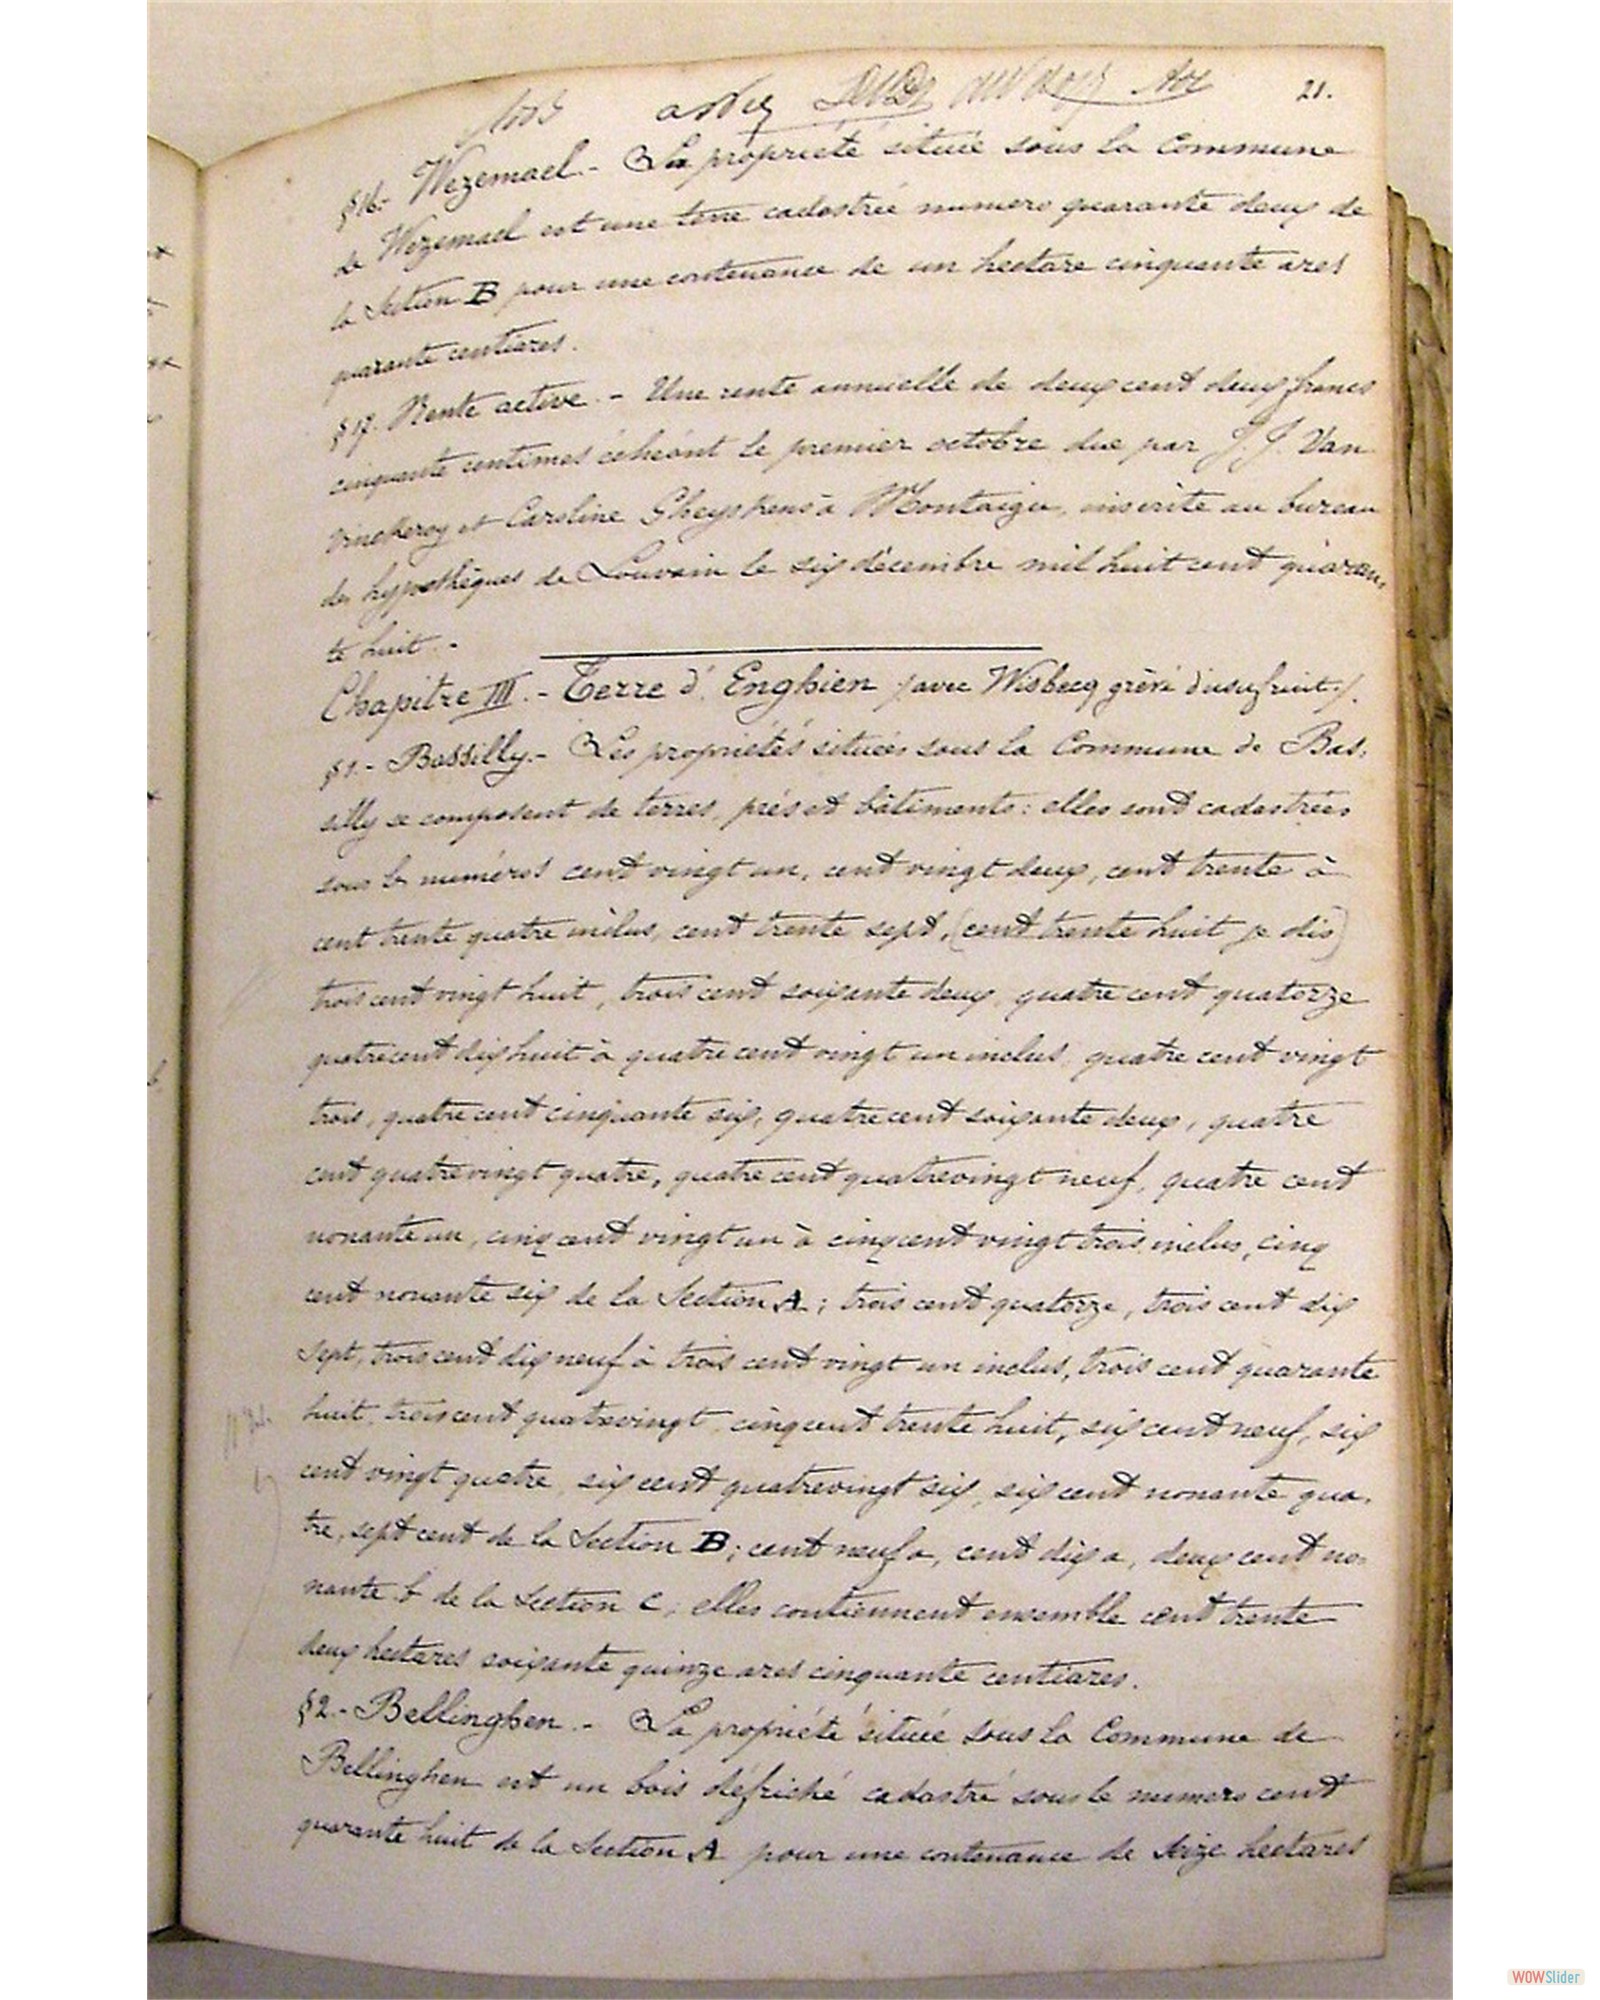 21.
§16.- Wezemael.- La propriété située sous la Commune
de Wezemael est une terre cadastrée numero quarante deux de
la Section B pour une contenance de un hectare cinquante ares
quarante centiares.
§17. Rente active.- Une rente annuelle de deux cent deux francs
cinquante centimes échéant le premier octobre due par J. J. Van
Vinckeroy et Caroline Gheyskens à Montaigu, inscrite au bureau
des hypothèques de Louvain le six décembre mil huit cent quaran-
te huit.-
Chapitre III.- Terre d'Enghien (avec Wisbecq grévé d'usufruit).
§1.- Bassilly.- Les propriétés situées sous la Commune de Bas-
silly se composent de terres, prés et bâtiments: elles sont cadastrées
sous les numéros cent vingt un, cent vingt deux, cent trente à
cent trente quatre inclus, cent trente sept, (cent trente huit je dis)
trois cent vingt huit, trois cent soixante deux, quatre cent quatorze
quatre cent dix huit à quatre cent vingt un inclus, quatre cent vingt
trois, quatre cent cinquante six, quatre cent soixante deux, quatre
cent quatrevingt quatre, quatre cent quatrevingt neuf, quatre cent
nonante un, cinq cent vingt un à cinq cent vingt trois inclus, cinq
cent nonante six de la Section A; trois cent quatorze, trois cent dix
sept, trois cent dix neuf à trois cent vingt un inclus, trois cent quarante
huit, trois cent quatrevingt, cinq cent trente huit, six cent neuf, six
cent vingt quatre, six cent quatrevingt six, six cent nonante qua-
tre, sept cent de la Section B; cent neuf a, cent dix a, deux cent no-
nante b de la Section C; elles contiennent ensemble cent trente
deux hectares soixante quinze ares cinquante centiares.
§2.- Bellinghen.- La propriété située sous la Commune de
Bellinghen est un bois défriché cadastré sous le numero cent
quarante huit de la Section A pour une contenance de seize hectares
WOWSlider